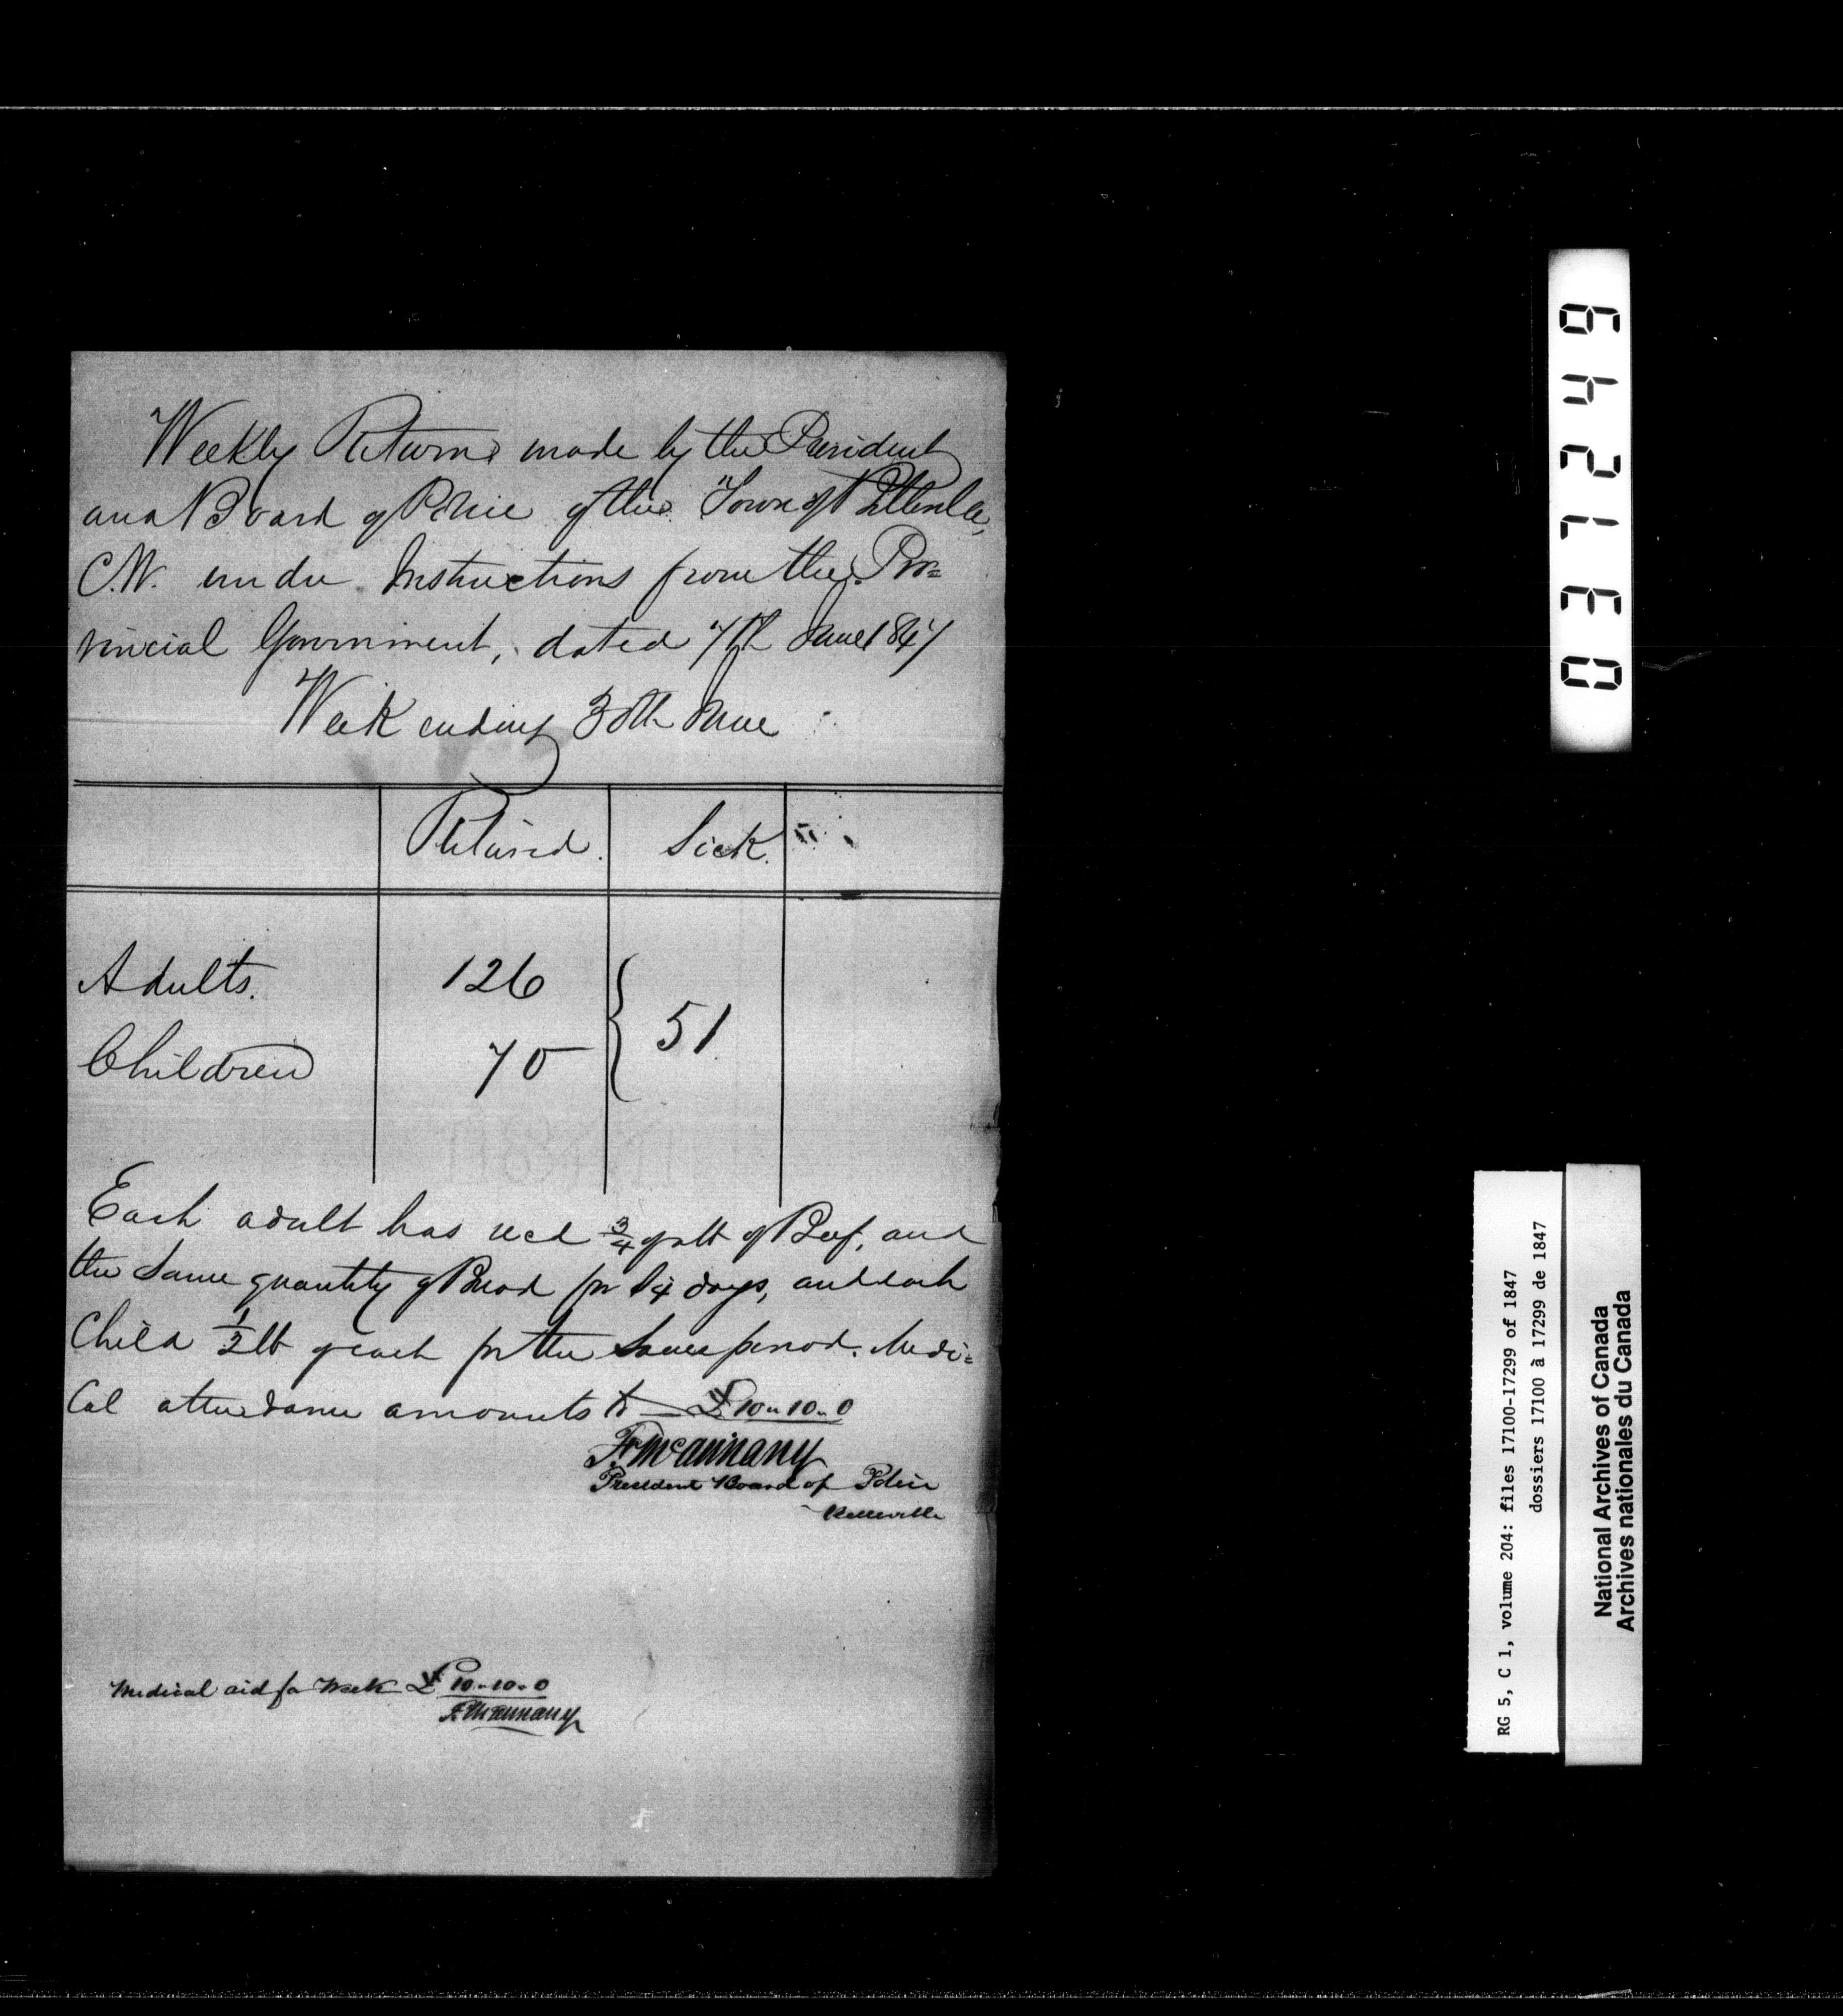 Weekly Returns made by the President
and Board of Police of the Town of Belleville,
C.W. under Instructions from the Pro=
vincial Government, dated 7th June 1847
Week ending 30th June
Relieved. Sick.
Adults. 126
51
Children 70
Each adult has recd 3/4 of a lb of Beef, and
the Same quantity of Bread for 14 days, and each
Child 1/2 lb of each for the Same period. Medi=
cal attendance amounts to — £10 " 10 " 0
F. McAnnany
President Board of Police
Belleville
Medical aid for Week £10 " 10 " 0
F. McAnnany
031249
RG 5, C 1, volume 204: files 17100-17299 of 1847
dossiers 17100 à 17299 de 1847
National Archives of Canada
Archives nationales du Canada